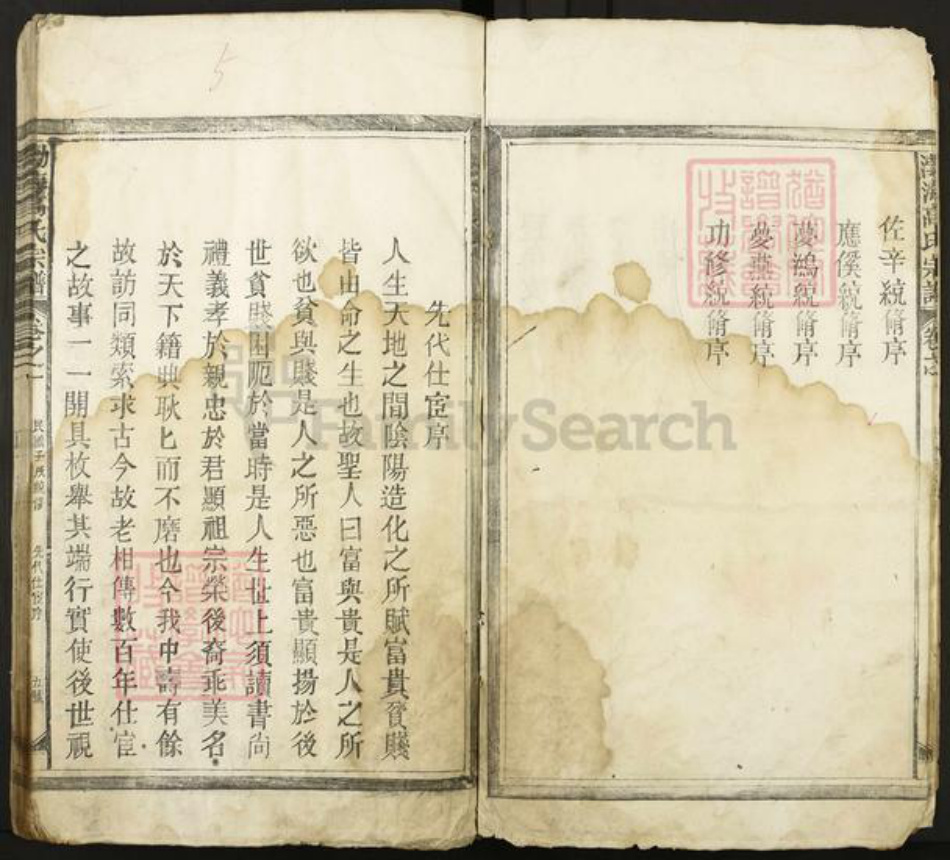 渤海高氏宗譜
佐辛統脩序
應僕統脩序
夢鴻統脩序
夢燕統脩序
功修統脩序
先代仕宦序
人生天地之間陰陽造化之所賦富貴貧賤
皆由命之生也故聖人曰富與貴是人之所
欲也貧與賤是人之所惡也富貴顯揚於後
世貧賤困厄於當時是人生世上須讀書尚
禮義孝於親忠於君顯祖宗榮後裔乖美名
於天下籍典耿匕而不磨也今我中壽有餘
故訪同類索求古今故老相傳數百年仕宦
之故事一一開具枚舉其端行實使後世視
渤海高氏宗譜
卷之一
先代仕宦序
FamilySearch
5